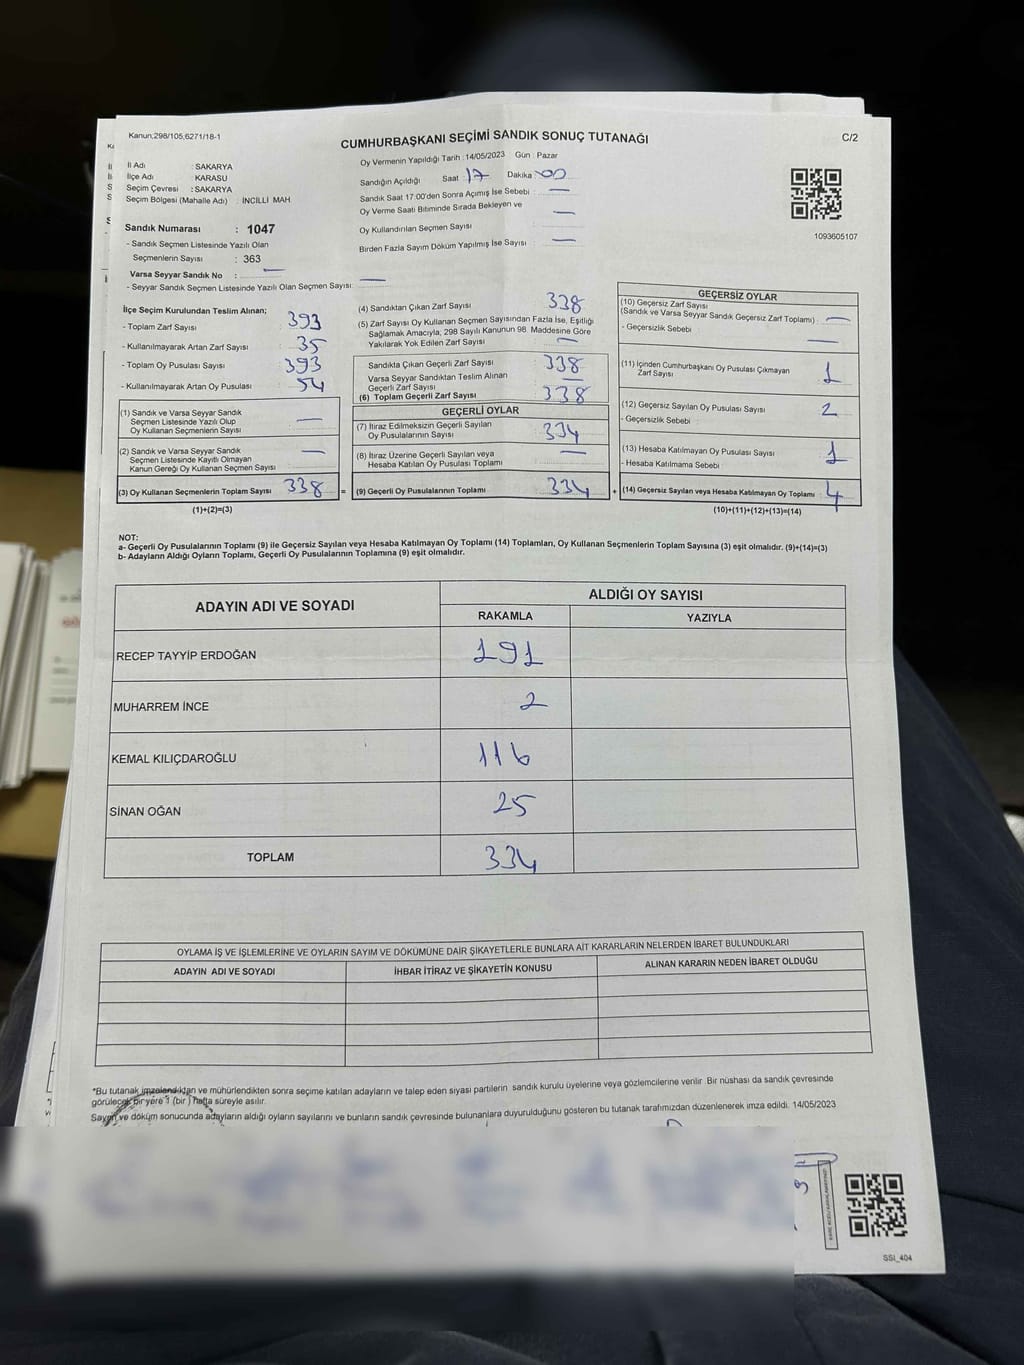 Kanun;298/105,6271/18-1
CUMHURBAŞKANI SEÇİMİ SANDIK SONUÇ TUTANAĞI
C/2
İl Adı : SAKARYA
İlçe Adı : KARASU
Seçim Çevresi : SAKARYA
Seçim Bölgesi (Mahalle Adı) : İNCİLLİ MAH
Sandık Numarası : 1047
- Sandık Seçmen Listesinde Yazılı Olan
Seçmenlerin Sayısı : 363
Varsa Seyyar Sandık No :
- Seyyar Sandık Seçmen Listesinde Yazılı Olan Seçmen Sayısı:
Oy Vermenin Yapıldığı Tarih :14/05/2023 Gün : Pazar
Sandığın Açıldığı Saat 17 Dakika 00
Sandık Saat 17:00'den Sonra Açımış İse Sebebi :
Oy Verme Saati Bitiminde Sırada Bekleyen ve
Oy Kullandırılan Seçmen Sayısı
Birden Fazla Sayım Döküm Yapılmış İse Sayısı
1093605107
İlçe Seçim Kurulundan Teslim Alınan;
- Toplam Zarf Sayısı 393
- Kullanılmayarak Artan Zarf Sayısı 35
- Toplam Oy Pusulası Sayısı 393
- Kullanılmayarak Artan Oy Pusulası 54
(1) Sandık ve Varsa Seyyar Sandık
Seçmen Listesinde Yazılı Olup
Oy Kullanan Seçmenlerin Sayısı
(2) Sandık ve Varsa Seyyar Sandık
Seçmen Listesinde Kayıtlı Olmayan
Kanun Gereği Oy Kullanan Seçmen Sayısı
(3) Oy Kullanan Seçmenlerin Toplam Sayısı 338
(1)+(2)=(3)
(4) Sandıktan Çıkan Zarf Sayısı 338
(5) Zarf Sayısı Oy Kullanan Seçmen Sayısından Fazla İse, Eşitliği
Sağlamak Amacıyla, 298 Sayılı Kanunun 98. Maddesine Göre
Yakılarak Yok Edilen Zarf Sayısı
Sandıkta Çıkan Geçerli Zarf Sayısı 338
Varsa Seyyar Sandıktan Teslim Alınan
Geçerli Zarf Sayısı
(6) Toplam Geçerli Zarf Sayısı 338
GEÇERLİ OYLAR
(7) İtiraz Edilmeksizin Geçerli Sayılan
Oy Pusulalarının Sayısı 334
(8) İtiraz Üzerine Geçerli Sayılan veya
Hesaba Katılan Oy Pusulası Toplamı
= (9) Geçerli Oy Pusulalarının Toplamı 334
GEÇERSİZ OYLAR
(10) Geçersiz Zarf Sayısı
(Sandık ve Varsa Seyyar Sandık Geçersiz Zarf Toplamı) :
- Geçersizlik Sebebi :
(11) İçinden Cumhurbaşkanı Oy Pusulası Çıkmayan
Zarf Sayısı 1
(12) Geçersiz Sayılan Oy Pusulası Sayısı 2
- Geçersizlik Sebebi :
(13) Hesaba Katılmayan Oy Pusulası Sayısı 1
- Hesaba Katılmama Sebebi :
+ (14) Geçersiz Sayılan veya Hesaba Katılmayan Oy Toplamı 4
(10)+(11)+(12)+(13)=(14)
NOT:
a- Geçerli Oy Pusulalarının Toplamı (9) ile Geçersiz Sayılan veya Hesaba Katılmayan Oy Toplamı (14) Toplamları, Oy Kullanan Seçmenlerin Toplam Sayısına (3) eşit olmalıdır. (9)+(14)=(3)
b- Adayların Aldığı Oyların Toplamı, Geçerli Oy Pusulalarının Toplamına (9) eşit olmalıdır.
ADAYIN ADI VE SOYADI
ALDIĞI OY SAYISI
RAKAMLA YAZIYLA
RECEP TAYYİP ERDOĞAN 191
MUHARREM İNCE 2
KEMAL KILIÇDAROĞLU 116
SİNAN OĞAN 25
TOPLAM 334
OYLAMA İŞ VE İŞLEMLERİNE VE OYLARIN SAYIM VE DÖKÜMÜNE DAİR ŞİKAYETLERLE BUNLARA AİT KARARLARIN NELERDEN İBARET BULUNDUKLARI
ADAYIN ADI VE SOYADI İHBAR İTİRAZ VE ŞİKAYETİN KONUSU ALINAN KARARIN NEDEN İBARET OLDUĞU
*Bu tutanak imzalandıktan ve mühürlendikten sonra seçime katılan adayların ve talep eden siyasi partilerin sandık kurulu üyelerine veya gözlemcilerine verilir. Bir nüshası da sandık çevresinde
görülecek bir yere 1 (bir ) hafta süreyle asılır.
Sayım ve döküm sonucunda adayların aldığı oyların sayılarını ve bunların sandık çevresinde bulunanlara duyurulduğunu gösteren bu tutanak tarafımızdan düzenlenerek imza edildi. 14/05/2023
SSI_404